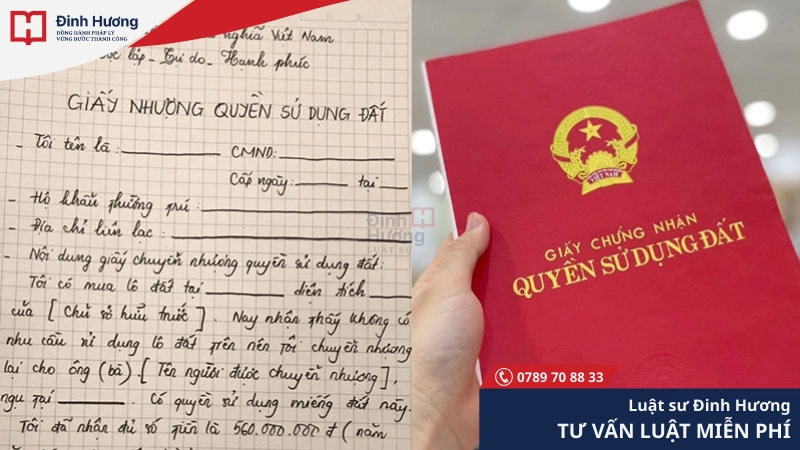 Đinh Hương
ĐỒNG HÀNH PHÁP LÝ
VỮNG BƯỚC THÀNH CÔNG
nghĩa Việt Nam
lập - Tự do - Hạnh phúc
GIẤY NHƯỢNG QUYỀN SỬ DỤNG ĐẤT
- Tôi tên là: CMND:
Cấp ngày: tại
- Hộ khẩu thường trú:
- Địa chỉ liên lạc:
- Nội dung giấy chuyển nhượng quyền sử dụng đất:
Tôi có mua lô đất tại diện tích
của [Chủ sở hữu trước]. Nay nhận thấy không có
nhu cầu sử dụng lô đất trên nên tôi chuyển nhượng
lại cho ông (bà) [Tên người được chuyển nhượng],
ngụ tại . Có quyền sử dụng miếng đất này.
Tôi đã nhận đủ số tiền là 560.000.000 đ (năm
Đinh
Hương
LUẬT SƯ
VIỆT NAM
GIẤY CHỨNG NHẬN
QUYỀN SỬ DỤNG ĐẤT
0789 70 88 33
Luật sư Đinh Hương
TƯ VẤN LUẬT MIỄN PHÍ